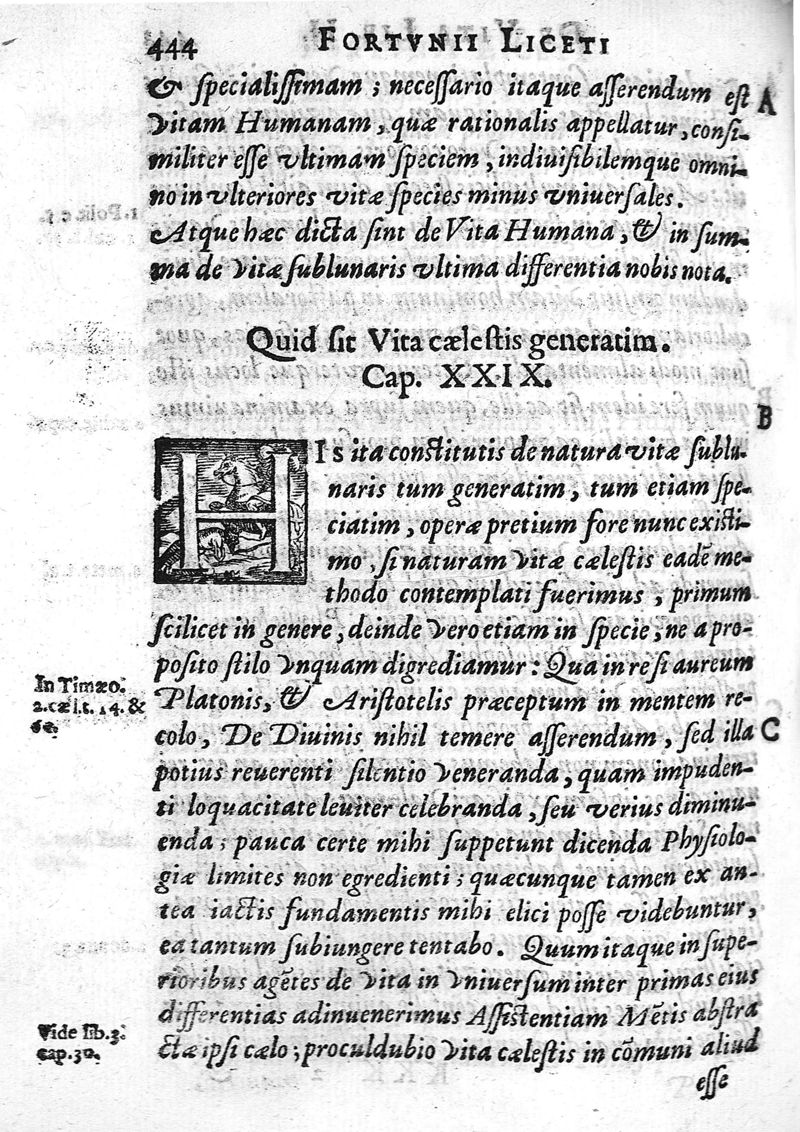 444 FORTVNII LICETI
& ſpecialiſſimam; neceſſario itaque aſſerendum eſt A
Vitam Humanam, quæ rationalis appellatur, conſi-
militer eſſe vltimam ſpeciem, indiuiſibilemque omni-
no in vlteriores vitæ ſpecies minus vniuerſales.
Atque hæc dicta ſint de Vita Humana, & in ſum-
ma de Vitæ ſublunaris vltima differentia nobis nota.
Quid ſit Vita cæleſtis generatim.
Cap. XXIX.
B
HIs ita conſtitutis de natura vitæ ſublu-
naris tum generatim, tum etiam ſpe-
ciatim, operæ pretium fore nunc exiſti-
mo, ſi naturam Vitæ cæleſtis eadē me-
thodo contemplati fuerimus, primum
ſcilicet in genere, deinde Vero etiam in ſpecie, ne a pro-
poſito ſtilo Vnquam digrediamur: Qua in re ſi aureum
In Timæo.
Platonis, & Ariſtotelis præceptum in mentem re-
2.cæl.t. 14. &
colo, De Diuinis nihil temere aſſerendum, ſed illa C
potius reuerenti ſilentio Veneranda, quam impuden-
ti loquacitate leuiter celebranda, ſeu verius diminu-
enda; pauca certe mihi ſuppetunt dicenda Phyſiolo-
giæ limites non egredienti; quæcunque tamen ex an-
tea iactis fundamentis mihi elici poſſe videbuntur,
ea tantum ſubiungere tentabo. Quum itaque in ſupe-
rioribus agētes de Vita in Vniuerſum inter primas eius
differentias adinuenerimus Aſſiſtentiam Mētis abſtra
Vide lib.3.
cap.30.
ctæ ipſi cælo; proculdubio Vita cæleſtis in cōmuni aliud
eſſe